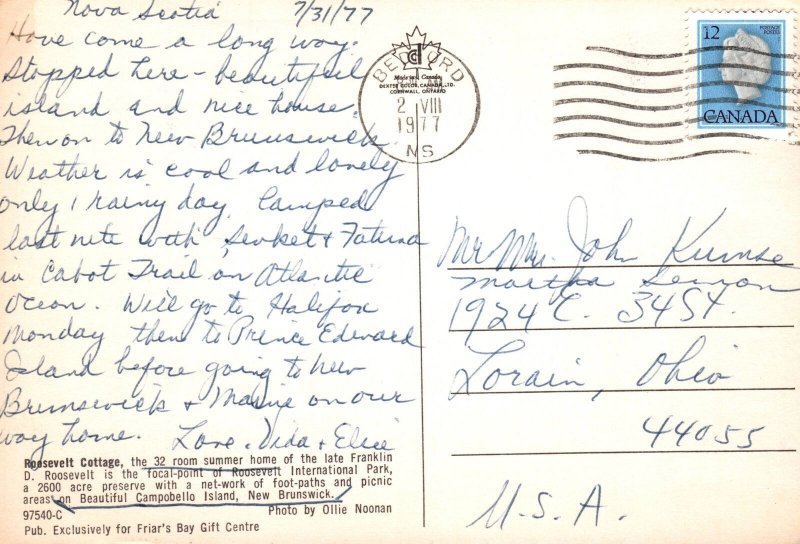 Nova Scotia 7/31/77
Have come a long way.
Stopped here - beautiful
island and nice house.
Then on to New Brunswick
Weather is cool and lovely
only 1 rainy day. Camped
last nite with Sevket & Fatma
in Cabot Trail on Atlantic
Ocean. Will go to Halifax
Monday then to Prince Edward
Island before going to New
Brunswick & Maine on our
way home. Love, Vida &
Roosevelt Cottage, the 32 room summer home of the late Franklin
D. Roosevelt is the focal-point of Roosevelt International Park,
a 2600 acre preserve with a net-work of foot-paths and picnic
areas on Beautiful Campobello Island, New Brunswick.
97540-C Photo by Ollie Noonan
Pub. Exclusively for Friar's Bay Gift Centre
Made in Canada
DEXTER COLOR CANADA, LTD.
CORNWALL, ONTARIO
BEDFORD
2 VIII
1977
NS
12
POSTAGE
POSTES
CANADA
Mr Mrs. John
Martha
1924 E. 34 St.
Lorain, Ohio
44055
U.S.A.